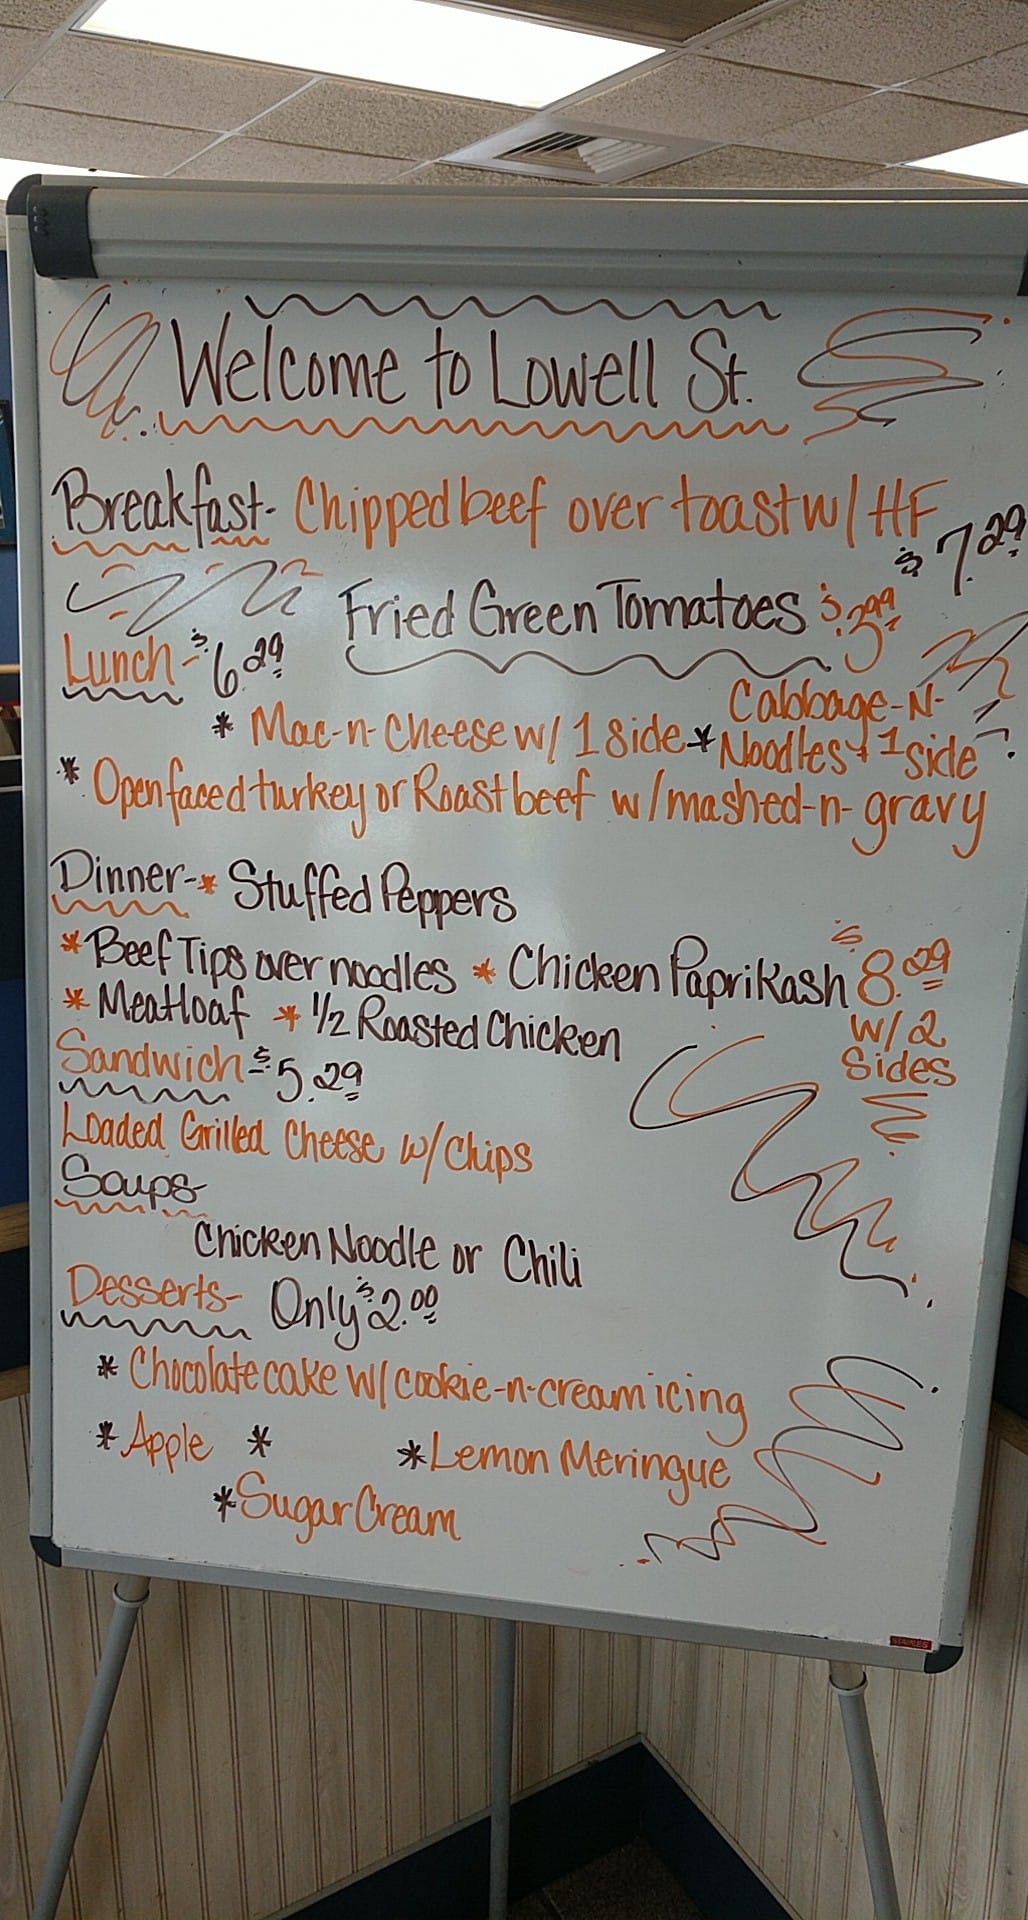 Welcome to Lowell St.
Breakfast- Chipped beef over toast w/ HF
$7.29
Fried Green Tomatoes $3.99
Lunch- $6.29
* Mac-n-Cheese w/ 1 side * Cabbage-N-Noodles + 1 side
* Open faced turkey or Roast beef w/ mashed-n-gravy
Dinner- * Stuffed Peppers
* Beef Tips over noodles * Chicken Paprikash $8.29
* Meatloaf * 1/2 Roasted Chicken w/ 2 Sides
Sandwich- $5.29
Loaded Grilled Cheese w/ Chips
Soups-
Chicken Noodle or Chili
Desserts- Only $2.00
* Chocolate cake w/ cookie-n-cream icing
* Apple * * Lemon Meringue
* Sugar Cream
STAPLES